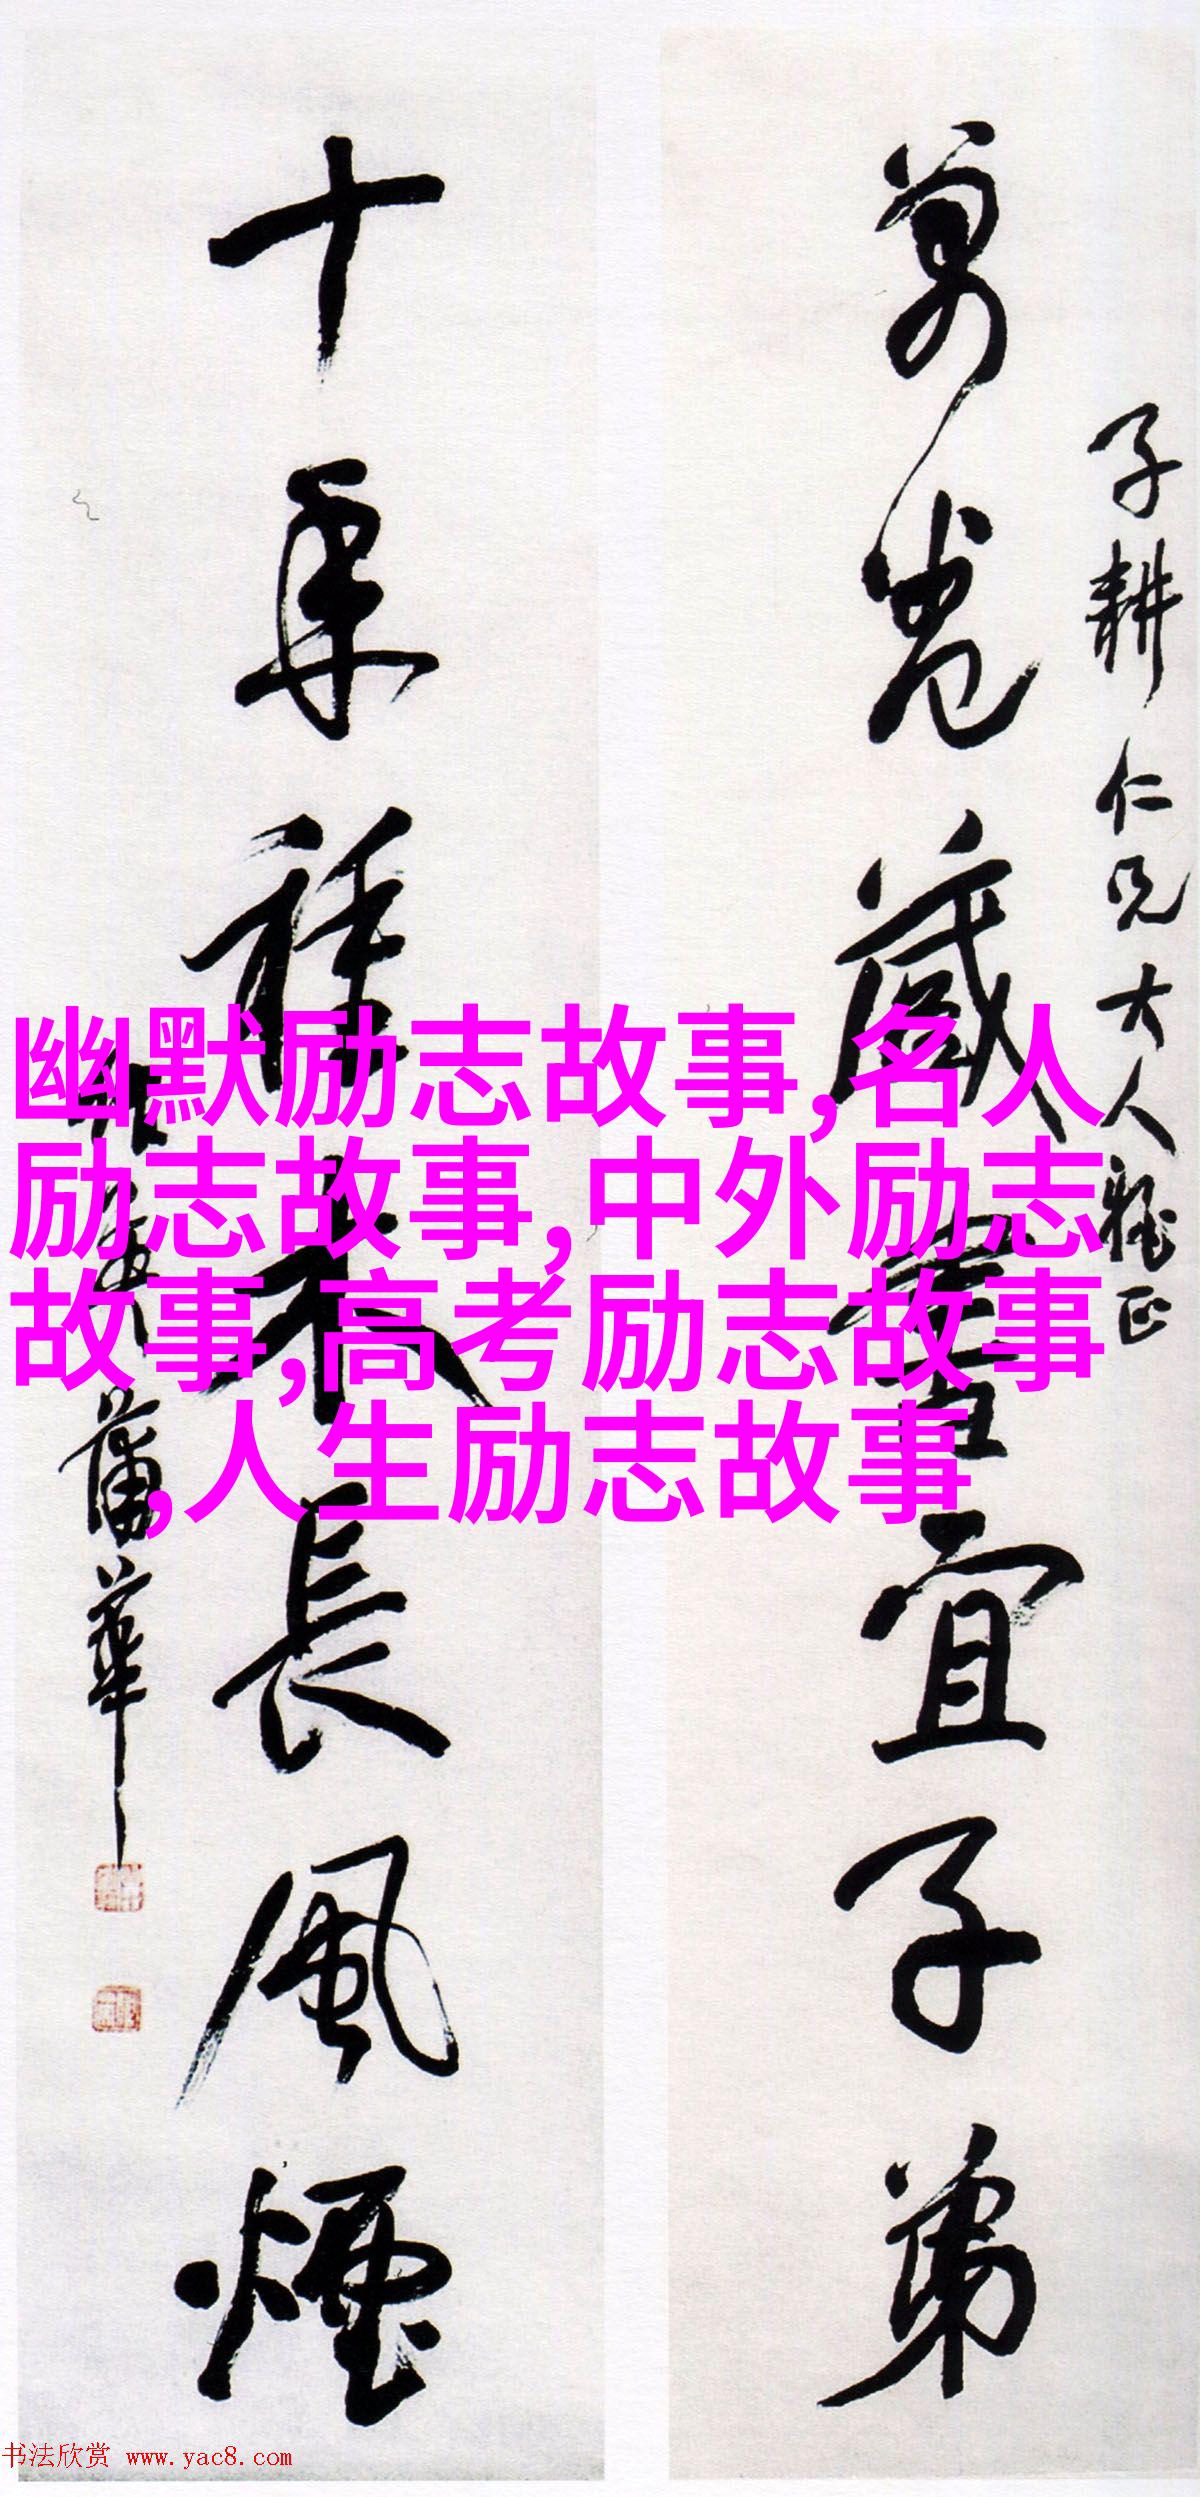 子耕仁兄大人雅正
萬卷藏書宜子弟
十年種木長風煙
蒲華
幽默励志故事,名人
励志故事,中外励志
故事,高考励志故事
,人生励志故事
书法欣赏 www.yac8.com